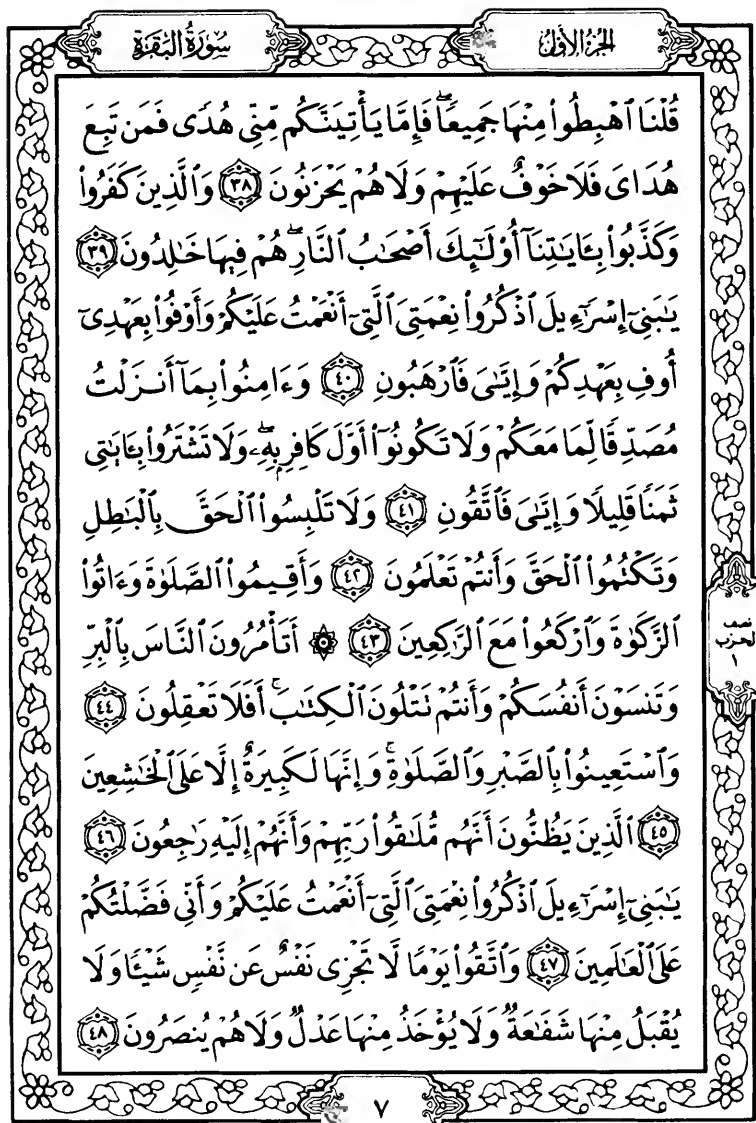 الجزء الأول
سورة البقرة
قُلْنَا ٱهْبِطُوا۟ مِنْهَا جَمِيعًۭا ۖ فَإِمَّا يَأْتِيَنَّكُم مِّنِّى هُدًۭى فَمَن تَبِعَ
هُدَاىَ فَلَا خَوْفٌ عَلَيْهِمْ وَلَا هُمْ يَحْزَنُونَ ٣٨ وَٱلَّذِينَ كَفَرُوا۟
وَكَذَّبُوا۟ بِـَٔايَـٰتِنَآ أُو۟لَـٰٓئِكَ أَصْحَـٰبُ ٱلنَّارِ ۖ هُمْ فِيهَا خَـٰلِدُونَ ٣٩
يَـٰبَنِىٓ إِسْرَٰٓءِيلَ ٱذْكُرُوا۟ نِعْمَتِىَ ٱلَّتِىٓ أَنْعَمْتُ عَلَيْكُمْ وَأَوْفُوا۟ بِعَهْدِىٓ
أُوفِ بِعَهْدِكُمْ وَإِيَّـٰىَ فَٱرْهَبُونِ ٤٠ وَءَامِنُوا۟ بِمَآ أَنزَلْتُ
مُصَدِّقًۭا لِّمَا مَعَكُمْ وَلَا تَكُونُوٓا۟ أَوَّلَ كَافِرٍۭ بِهِۦ ۖ وَلَا تَشْتَرُوا۟ بِـَٔايَـٰتِى
ثَمَنًۭا قَلِيلًۭا وَإِيَّـٰىَ فَٱتَّقُونِ ٤١ وَلَا تَلْبِسُوا۟ ٱلْحَقَّ بِٱلْبَـٰطِلِ
وَتَكْتُمُوا۟ ٱلْحَقَّ وَأَنتُمْ تَعْلَمُونَ ٤٢ وَأَقِيمُوا۟ ٱلصَّلَوٰةَ وَءَاتُوا۟
ٱلزَّكَوٰةَ وَٱرْكَعُوا۟ مَعَ ٱلرَّٰكِعِينَ ٤٣ ۞ أَتَأْمُرُونَ ٱلنَّاسَ بِٱلْبِرِّ
وَتَنسَوْنَ أَنفُسَكُمْ وَأَنتُمْ تَتْلُونَ ٱلْكِتَـٰبَ ۚ أَفَلَا تَعْقِلُونَ ٤٤
وَٱسْتَعِينُوا۟ بِٱلصَّبْرِ وَٱلصَّلَوٰةِ ۚ وَإِنَّهَا لَكَبِيرَةٌ إِلَّا عَلَى ٱلْخَـٰشِعِينَ
٤٥ ٱلَّذِينَ يَظُنُّونَ أَنَّهُم مُّلَـٰقُوا۟ رَبِّهِمْ وَأَنَّهُمْ إِلَيْهِ رَٰجِعُونَ ٤٦
يَـٰبَنِىٓ إِسْرَٰٓءِيلَ ٱذْكُرُوا۟ نِعْمَتِىَ ٱلَّتِىٓ أَنْعَمْتُ عَلَيْكُمْ وَأَنِّى فَضَّلْتُكُمْ
عَلَى ٱلْعَـٰلَمِينَ ٤٧ وَٱتَّقُوا۟ يَوْمًۭا لَّا تَجْزِى نَفْسٌ عَن نَّفْسٍۢ شَيْـًۭٔا وَلَا
يُقْبَلُ مِنْهَا شَفَـٰعَةٌۭ وَلَا يُؤْخَذُ مِنْهَا عَدْلٌۭ وَلَا هُمْ يُنصَرُونَ ٤٨
نصف
الحزب
١
٧